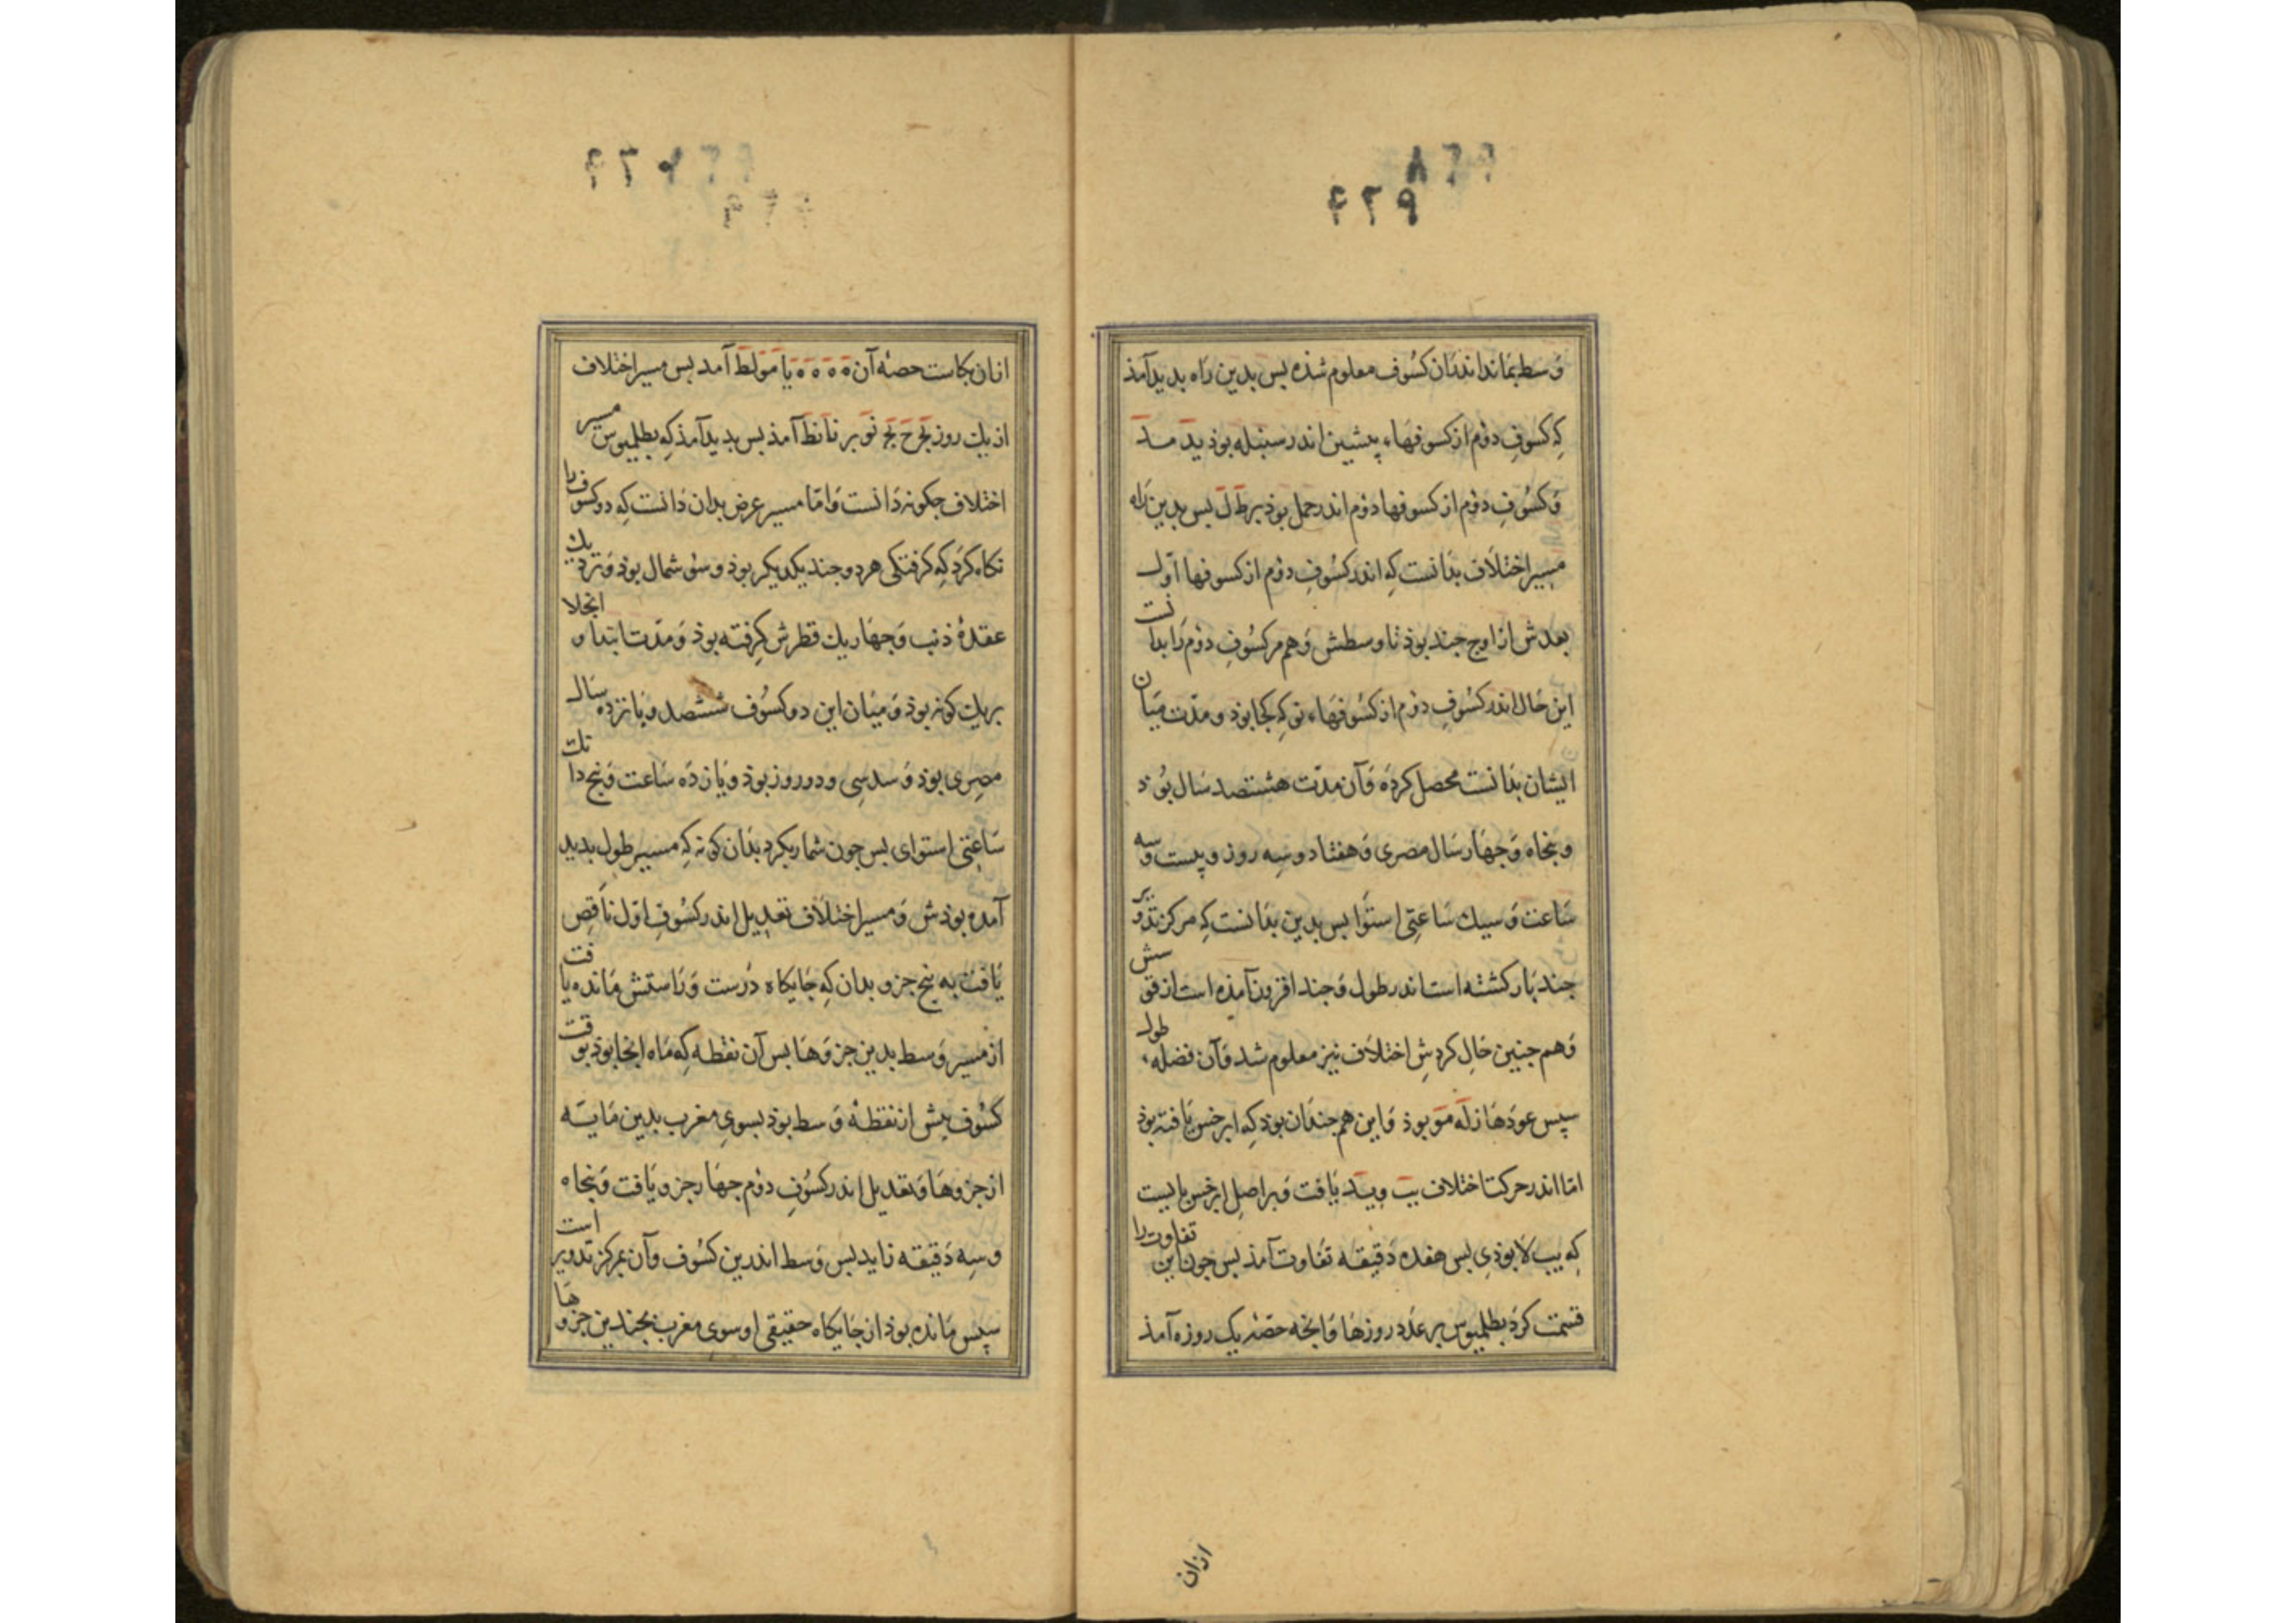 ۴۲۸
۴۲۹
وسط بماند اندران کسوف معلوم شده بس بدین راه بدید آمذ
که کسوفِ دوُم از کسوفهاء پیشین اندر سنبله بوذ ید مد
وَ کسُوفِ دوُم از کسوفها دوُم اندر حمل بوذ بر ط ل بس بدین راه
مسیر اختلاف بدانست که اندر کسُوفِ دوُم از کسوفها اوّل
بعدش از اوج جند بوذ تا وسطش وَ هم مر کسُوفِ دوُم رَا بدانست
این حَال اندر کسُوفِ دوُم از کسُوفهَاء نو که کجا بوذ و مدّت میَان
ایشان بدَانست محصل کردَه وَ آن مدّت هشتصد سَال بوُذ
و بنجاه وَ جهَار سَال مصری وَ هفتاد و سِه روز و بیست وَ سه
سَاعت وَ سیك سَاعتِی استوَا بس بدین بدَانست که مرکز تدویر
جند بَار کشته است اندر طول وَ جند افزون آمذه است از قوسش
وَ هم جنین حَالِ کردشِ اختلاَف نیز معلوم شد وَ آن فضلهء طول
سپس عودهَا زله مو بوذ وَ این هم جندَان بوذ که ابرخس یَافته بوذ
امّا اندر حرکت اختلاف یب و ید یَافت وَ بر اصلِ ابرخس بایست
که یب لا بوذیِ بس هفده دَقیقه تفَاوت آمذ بس جون این تفاوت را
قسمت کردَ بطلمیوس بر عدَدِ روزهَا وَ انجه حصّهٔ یک روزه آمذ
ازان
۴۲۷
ازان بکاست حصهٔ آن ٥ ٥ ٥ ٥ یا مو لط آمد بس مسیر اختلاف
از یك روز یج ج نج نو بر نا نط آمذ بس بدید آمذ که بطلمیوس مسیر
اختلاف جکونه دَانست وَ امّا مسیر عرض بدان دَانست که دو کسوف را
نکاه کرَد که کرفتکی هر دو جند یکدیکر بوذ و سُوی شمال بوذ وَ نزدیك
عقدهٔ ذنب وَ جهَار یك قطرش کرِفته بوذ وَ مدّت ابتدا و انجلا
بریك کونه بوذ وَ میَان این دو کسُوف ششصد و بَانزده سَال
مصِری بوذ وَ سدسِی و دو روز بوذ و یَازدَه سَاعت وَ بنج دانك
سَاعتِی استوای بس جون شمار بکرد بدَان کونه که مسیر طول بدید
آمده بوذش وَ مسیر اختلاَف تعدیل اندر کسُوفِ اوّل ناَقِص
یَافت به بنج جزو بدان که جَایکاه دَرست وَ رَاستش مَانده یافت
از مسیر وَسط بدین جزوهَا بس آن نقطه که مَاه انجا بوذ بوقت
کسُوف بیش از نقطهٔ وَسط بوذ بسویِ مغرب بدین مَایَه
از جزوهَا وَ تعدیل اندر کسُوفِ دوُم جهَار جزو یَافت وَ بنجَاه
و سِه دَقیقه زاید بس وَسط اندرین کسُوف و آن مرکز تدویر است
سپس مَانده بوذ از جَایکاه حقیقی او سویِ مغرب بجندین جزوهَا